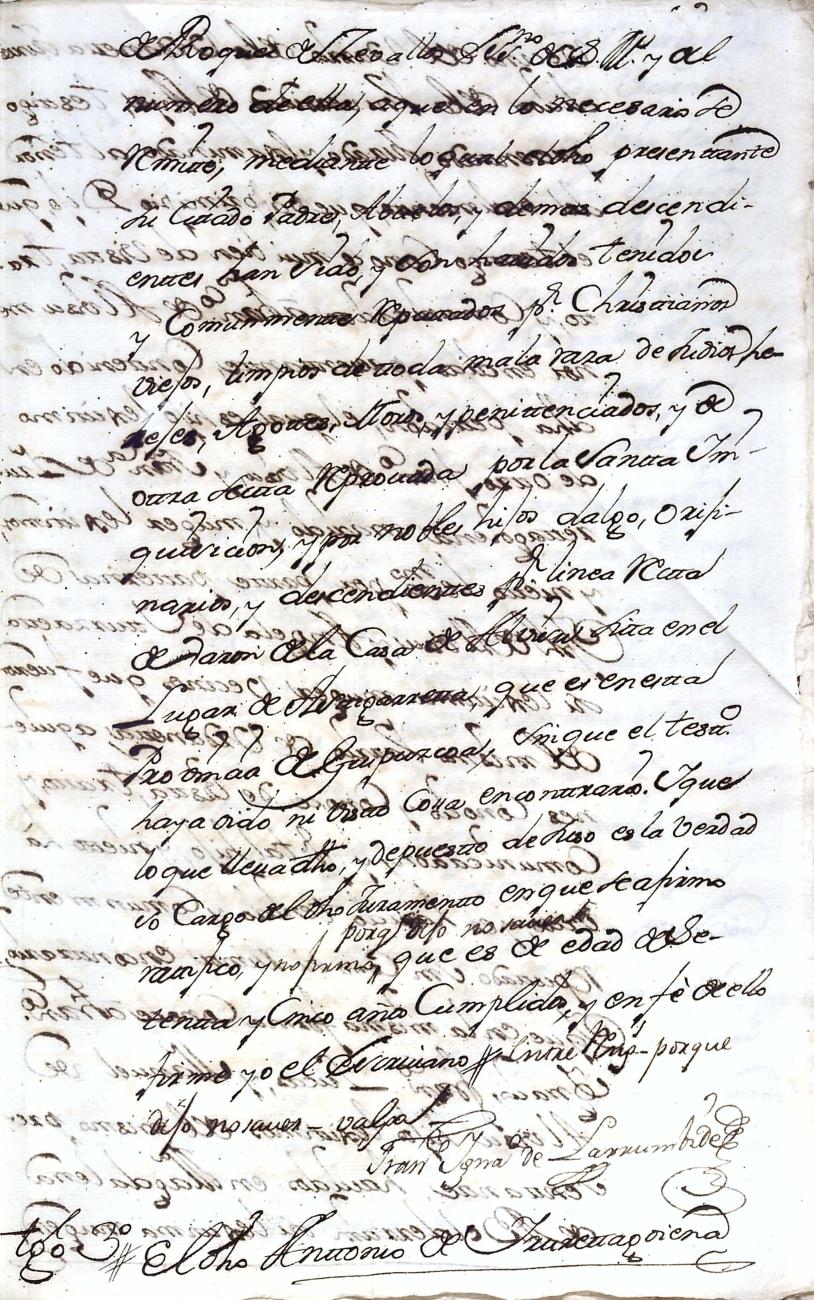 de Roque de Zevallos Scrivno de S. M. y del
numero de ella, a que en lo necesario se
remite, mediante lo qual el dho presenttante
su Cittado Padre, Abuelo, y demas descendi-
enttes han sido, y son havidos tenidos
y Comunmente Reputtados pr. Christtianos
viejos, limpios de ttoda mala raza de Judios, he-
rejes, Agottes, Moros, y penittenciados, y de
ottra sectta Reprovada por la Santta In-
quisicion, y por nobles hijos dalgo, orixi-
narios, y descendienttes pr. linea Rectta
de Varon de la Casa de sitta en el
Lugar de que es en estta
Provincia de Guipuzcoa, sin que el testigo
haya oido ni visto Cossa en conttrario. Y que
lo que lleva dho, y depuestto deshuso es la verdad
so Cargo del dho Juramentto en que se afirmo
porq dijo no saver
ratifico, y no firmo, que es de edad de Se-
tentta y Cinco años Cumplidos, y en fè de ello
firme yo el Escriviano # Entre Rengs - porque
dijo no saver - valga
Fran Igna de Larrumbide
tgo 3o # El dho Anttonio de Iturettagoiena